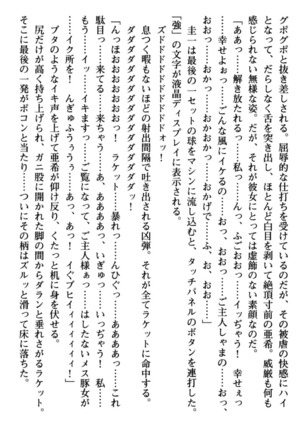 グポグポと抜き差しされる。屈辱的な仕打ちを受けているのだが、その被虐の快感にハイ
となって、だらしなく舌を突き出し、ほとんど白目を剥いて絶頂寸前の亜希。威厳も何も
感じられない無様な姿。だが、それが彼女にとっては虚飾のない素顔なのだ。
「ああっ……解き放たれるっ……私っ……んっ、ふごおおっ……イッちゃう！ 幸せぇっ
……幸せよぉっ……こんな風にイケるのっ……おっ、おおっ……ご主人しゃまのっ……
おおっ……おかっ……おっ、おかおかっ……おかげでっ……ふ、お、おおっ……」
圭一は最後の一セットの球をマシンに流し込むと、タッチパネルのボタンを連打した。
「強」の文字が液晶ディスプレイに表示される。
ズドドドドドドドドドドォッ！
息つく暇もないほどの射出間隔で吐き出される凶弾。それが全てラケットに命中する。
ダダダダダダダダダダダダダダダダッ！
「んっほおおおおおおおおおおおっ！ ラケットぉ……暴れっ……んひぐっ……これ
駄目っ……来てるっ……来ちゃうっ……あ、あっ、いぎゅっ……いっちゅうっ！ 私……
もうっ……イッ、イキますっ……ご覧になって、ご主人様ぁっ……はしたないメス豚女が
……イク所をっ！ んぎゅふうぅうっ……あっ、あっ……イ、イくブヒイィイイイイッ！」
ブタのようなイキ声を上げて亜希が仰け反り、くたっと桐に身を伏せる。
尻だけが高く持ち上げられ、ガニ股に開かれた脚の間からダランと垂れ下がるラケット。
そこに最後の一発がポコンと当たり……ついにその柄はズルッと滑って床に落ちた。